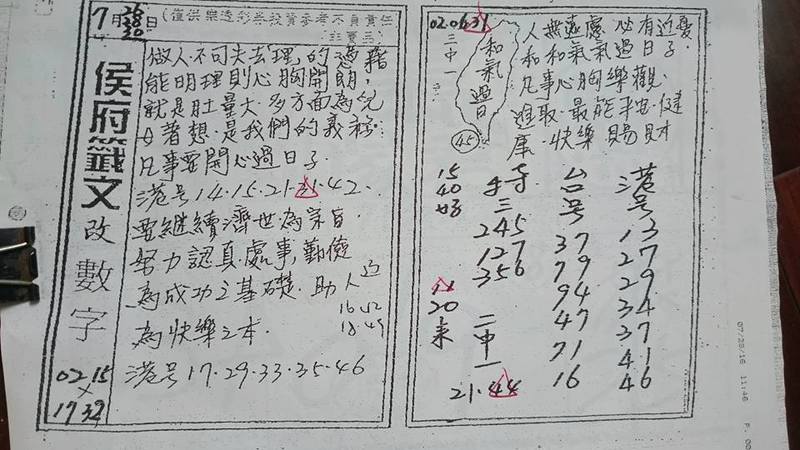 7月28日
30
(僅供樂透彩券投資參考不負責任
侯府籤文
改數字
02 15
×
17 39
做人不可失去理的憑藉
能明理則心胸開朗,
就是肚量大.多方面為兒
女著想.是我們的義務
凡事要開心過日子.
港号14.15.21.31.42.
要繼續濟世為宗旨.
努力認真處事,勤儉
為成功之基礎.助人
為快樂之本.
16 42
18 49
港号17.29.33.35.46
02.06.31
三中一
和氣過日
45
人無遠慮必有近憂
和和氣氣過日子
凡事心胸樂觀
進取.最能平安.健
康.快樂賜財
15
40
20
來
三
245
127
356
二中一
21.44
台号
37
79
94
47
71
16
港号
13
27
29
34
37
41
46
07/28/16 11:46 P.00